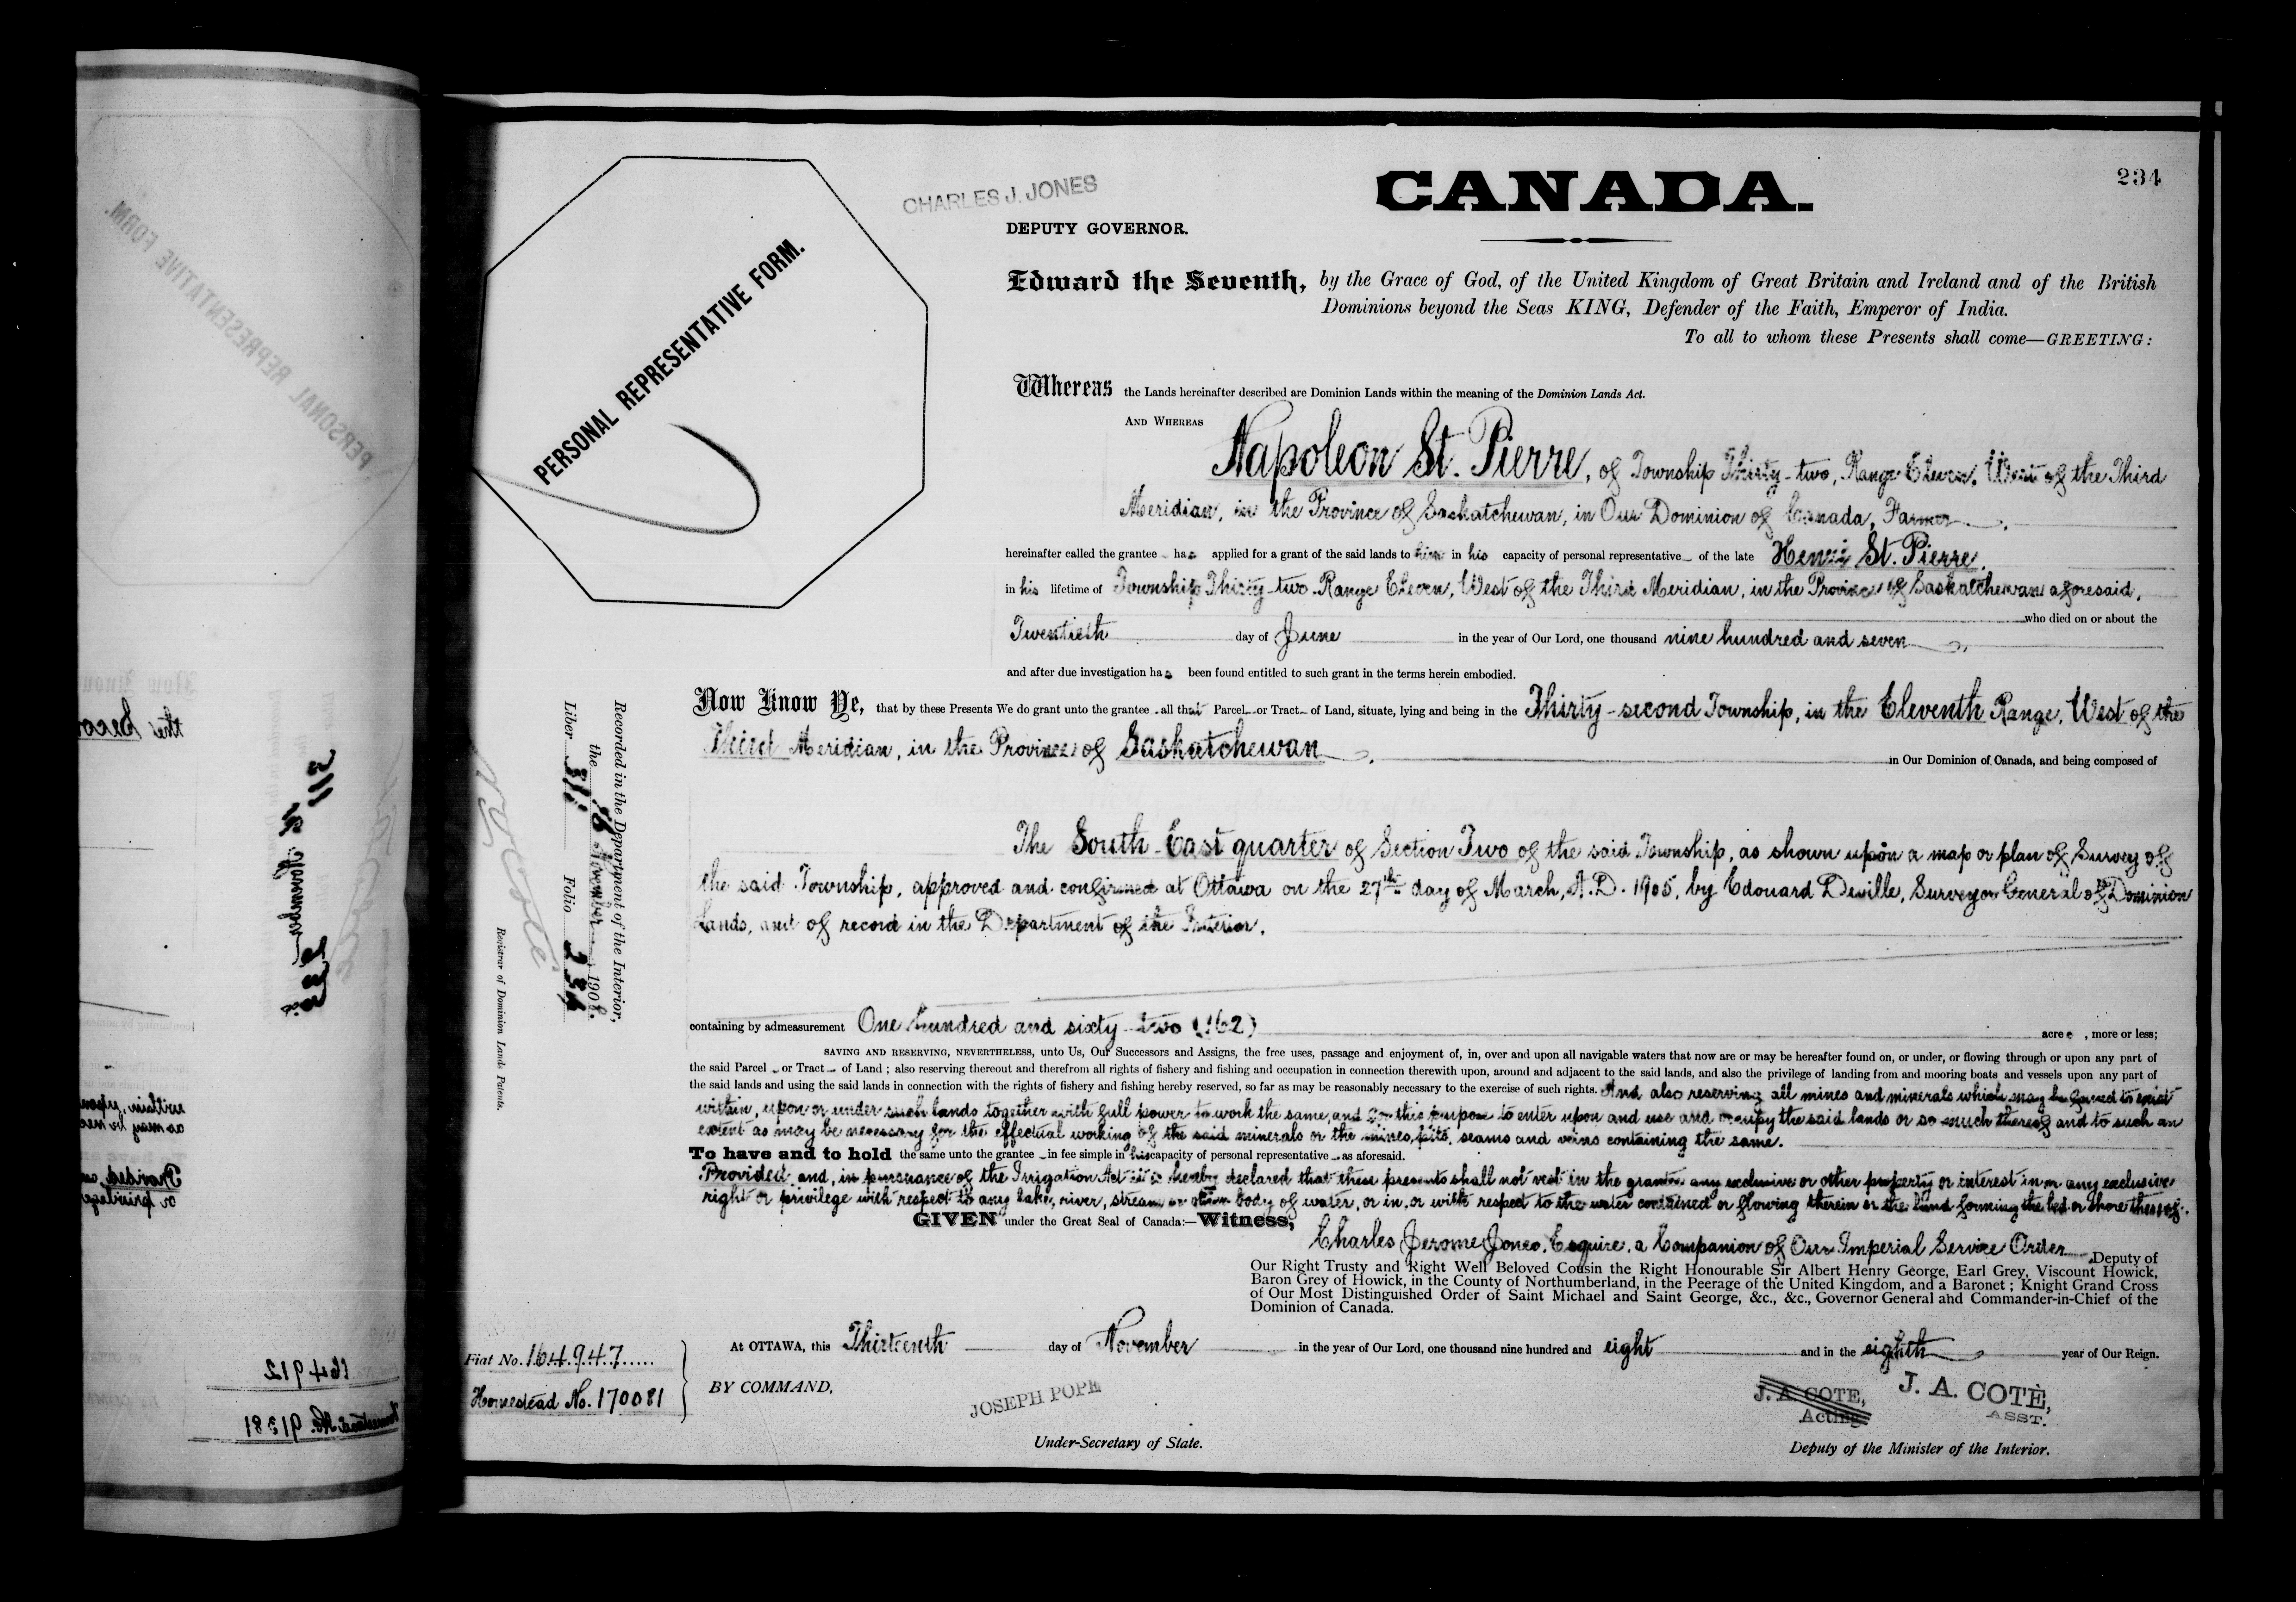 234
CANADA.
CHARLES J. JONES
DEPUTY GOVERNOR.
PERSONAL REPRESENTATIVE FORM.
Edward the Seventh, by the Grace of God, of the United Kingdom of Great Britain and Ireland and of the British
Dominions beyond the Seas KING, Defender of the Faith, Emperor of India.
To all to whom these Presents shall come—GREETING:
Whereas the Lands hereinafter described are Dominion Lands within the meaning of the Dominion Lands Act.
AND WHEREAS
Napoleon St. Pierre, of Township Thirty-two, Range Eleven, West of the Third
Meridian, in the Province of Saskatchewan, in Our Dominion of Canada, Farmer
hereinafter called the grantee has applied for a grant of the said lands to him in his capacity of personal representative of the late Henri St. Pierre,
in his lifetime of Township Thirty-two Range Eleven, West of the Third Meridian, in the Province of Saskatchewan aforesaid,
who died on or about the
Twentieth day of June in the year of Our Lord, one thousand nine hundred and seven
and after due investigation has been found entitled to such grant in the terms herein embodied.
Now Know Ye, that by these Presents We do grant unto the grantee all that Parcel or Tract of Land, situate, lying and being in the Thirty-second Township, in the Eleventh Range, West of the
Third Meridian, in the Province of Saskatchewan
in Our Dominion of Canada, and being composed of
The South East quarter of Section Two of the said Township, as shown upon a map or plan of Survey of
the said Township, approved and confirmed at Ottawa on the 27th day of March, A.D. 1905, by Edouard Deville, Surveyor General of Dominion
Lands, and of record in the Department of the Interior.
containing by admeasurement One hundred and sixty two (162)
acres, more or less;
SAVING AND RESERVING, NEVERTHELESS, unto Us, Our Successors and Assigns, the free uses, passage and enjoyment of, in, over and upon all navigable waters that now are or may be hereafter found on, or under, or flowing through or upon any part of
the said Parcel or Tract of Land; also reserving thereout and therefrom all rights of fishery and fishing and occupation in connection therewith upon, around and adjacent to the said lands, and also the privilege of landing from and mooring boats and vessels upon any part of
the said lands and using the said lands in connection with the rights of fishery and fishing hereby reserved, so far as may be reasonably necessary to the exercise of such rights. And also reserving all mines and minerals which may be found to exist
within, upon or under such lands together with full power to work the same, and for this purpose to enter upon and use and occupy the said lands or so much thereof and to such an
extent as may be necessary for the effectual working of the said minerals or the mines, pits, seams and veins containing the same.
To have and to hold the same unto the grantee in fee simple in his capacity of personal representative as aforesaid.
Provided and, in pursuance of the Irrigation Act it is hereby declared that these presents shall not vest in the grantee any exclusive or other property or interest in or any exclusive
right or privilege with respect to any lake, river, stream or other body of water, or in, or with respect to the water contained or flowing therein or the land forming the bed or shore thereof.
GIVEN under the Great Seal of Canada:—Witness,
Charles Jerome Jones, Esquire, a Companion of Our Imperial Service Order Deputy of
Our Right Trusty and Right Well Beloved Cousin the Right Honourable Sir Albert Henry George, Earl Grey, Viscount Howick,
Baron Grey of Howick, in the County of Northumberland, in the Peerage of the United Kingdom, and a Baronet; Knight Grand Cross
of Our Most Distinguished Order of Saint Michael and Saint George, &c., &c., Governor General and Commander-in-Chief of the
Dominion of Canada.
At OTTAWA, this Thirteenth day of November in the year of Our Lord, one thousand nine hundred and eight and in the eighth year of Our Reign.
BY COMMAND,
JOSEPH POPE
Under-Secretary of State.
J. A. COTE,
Acting
J. A. COTE,
ASST.
Deputy of the Minister of the Interior.
Fiat No. 164947
Homestead No. 170081
Recorded in the Department of the Interior,
the November 1908.
Liber Folio 234
N O Coté
Registrar of Dominion Lands Patents.
PERSONAL REPRESENTATIVE FORM.
the Secon
November
within, upon
as may be nec
Provided an
or privilege
164912
Homestead No. 91381